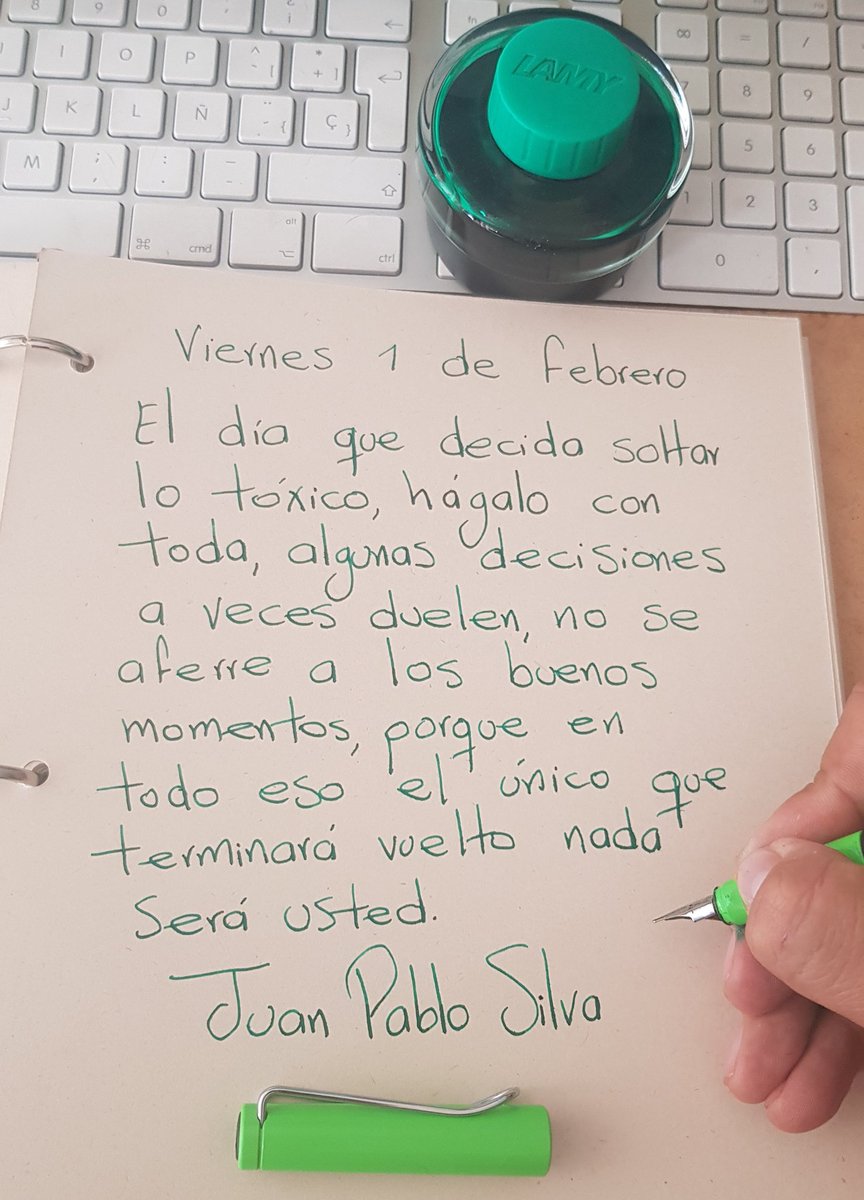 8 9 0 fn
I O P ^ [ * + ]
J K L Ñ { Ç }
M ; , : . _ -
⌘ cmd alt ⌥ ctrl
∞ = /
7 8 9
5 6
1 2 3
0 ,
LAMY
Viernes 1 de febrero
El día que decida soltar
lo tóxico, hágalo con
toda, algunas decisiones
a veces duelen, no se
aferre a los buenos
momentos, porque en
todo eso el único que
terminará vuelto nada
será usted.
Juan Pablo Silva